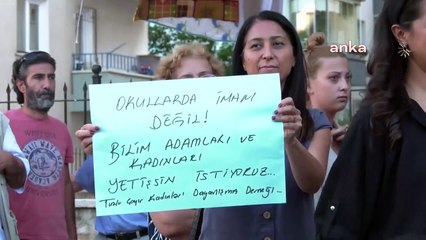 anka
OKULLARDA İMAM
DEĞİL!
BİLİM ADAMLARI VE
KADINLARI
YETİŞSİN İSTİYORUZ...
Kadınları Dayanışma Derneği...